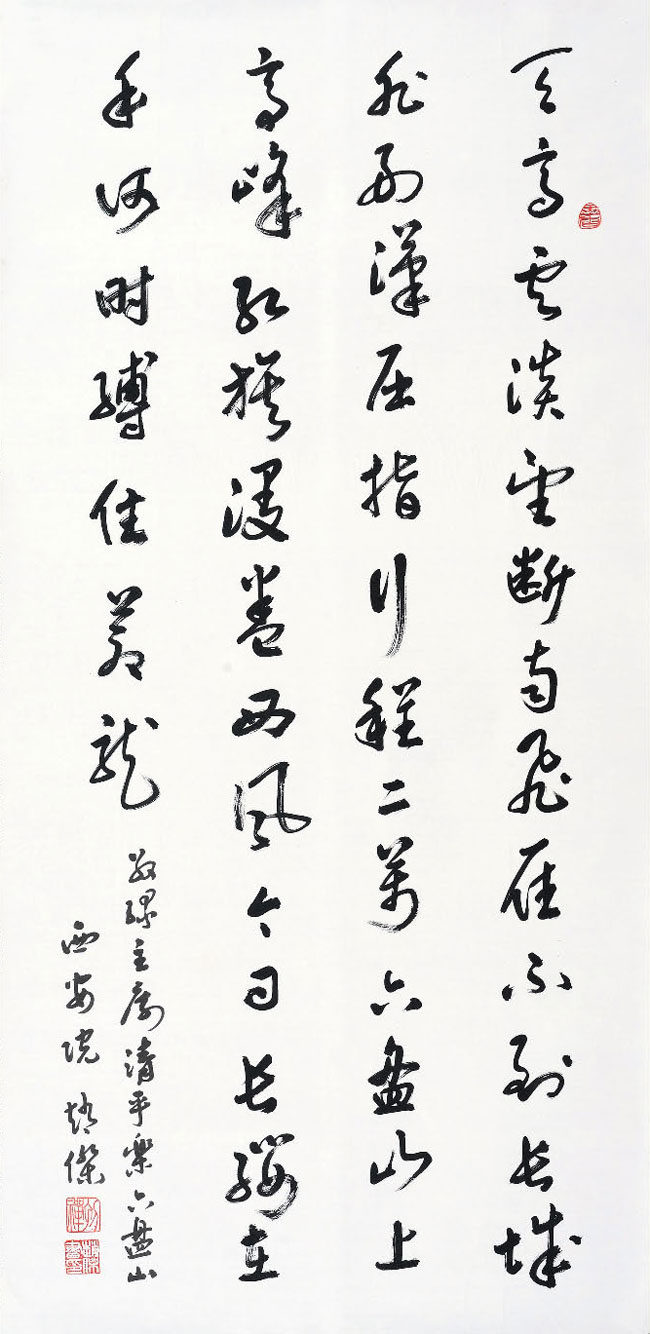 天高云淡望断南飛雁不到长城
非好漢屈指行程二萬六盘山上
高峰红旗漫卷西風今日长缨在
手何时缚住苍龍
敬録主席清平樂六盘山
西安院 傑